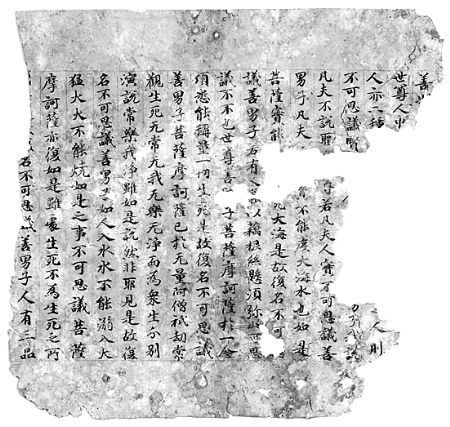 善
世尊人中
人亦二種 人則
不可思議
凡夫不說耶 尊若凡夫人實不可思議善
男子凡夫 實不能度大海水也如是
菩薩實能 大海是故復名不可
議善男子若有 以藕根絲懸須弥 可思
議不不也世尊善 子菩薩摩訶薩於一念
須悉能稱量一切生死是故復名不可思議
善男子菩薩摩訶薩已於无量阿僧祇劫常
觀生死无常无我无樂无淨而為衆生分別
演說常樂我淨雖如是說然非耶見是故復
名不可思議善男子如人入水水不能溺入大
猛火火不能燒如是之事不可思議菩薩
摩訶薩亦復如是雖處生死不為生死之所
名不可思議善男子人有三品